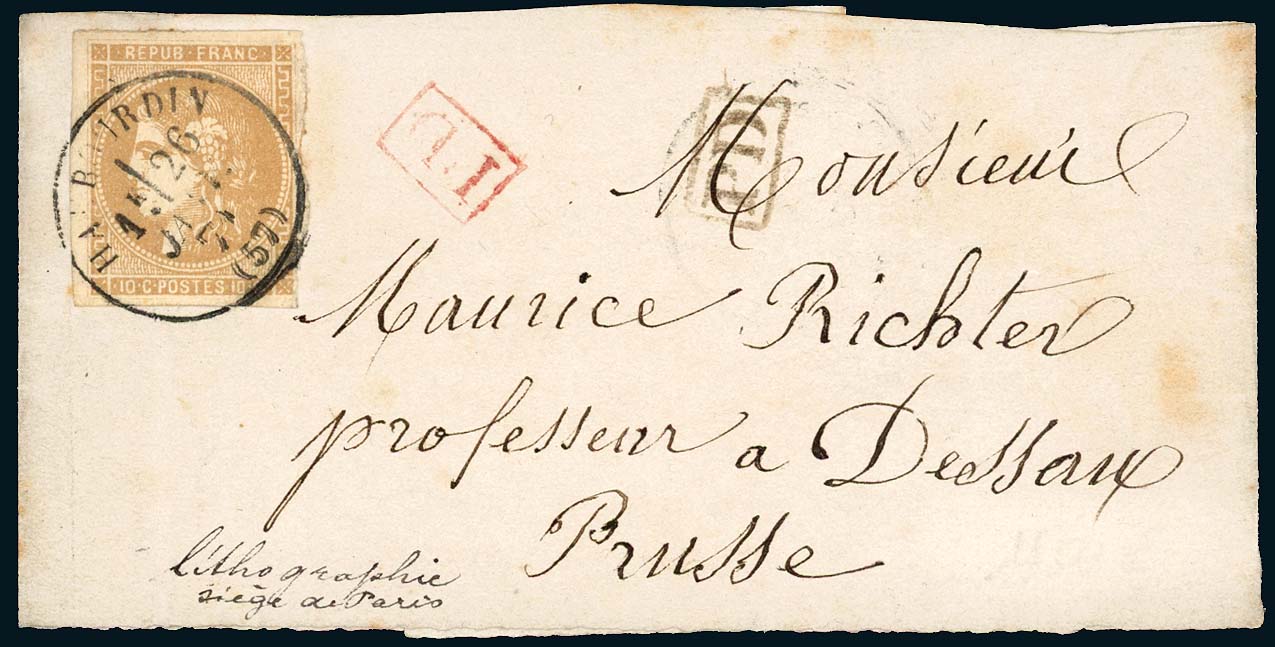 REPUB·FRANC
HAUBOURDIN
1E/26
JANV.
71
(57)
10·C·POSTES·10
PD
PD
Monsieur
Maurice Richter
professeur a Dessau
Prusse
lithographie
siège de Paris